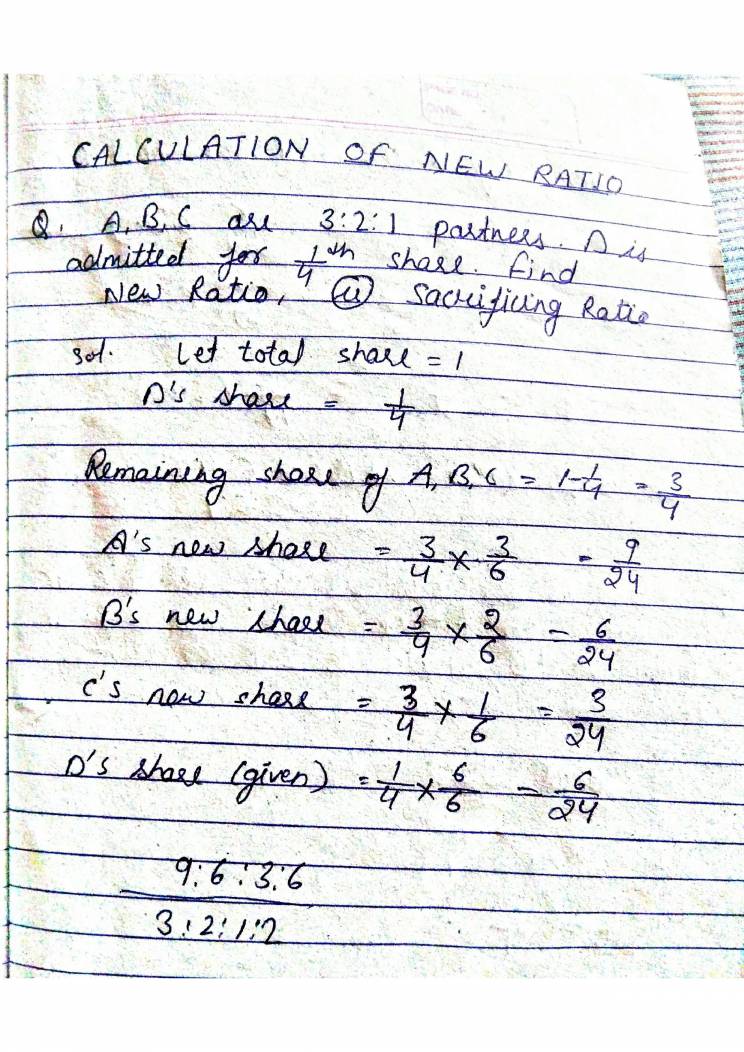 CALCULATION OF NEW RATIO
Q. A, B, C are 3:2:1 partners. D is
admitted for 1/4th share. find
New Ratio, (ii) Sacrificing Ratio
sol. Let total share = 1
D's share = 1/4
Remaining share of A, B, C = 1-1/4 = 3/4
A's new share = 3/4 × 3/6 = 9/24
B's new share = 3/4 × 2/6 = 6/24
C's new share = 3/4 × 1/6 = 3/24
D's share (given) = 1/4 × 6/6 = 6/24
9:6:3:6
3:2:1:2